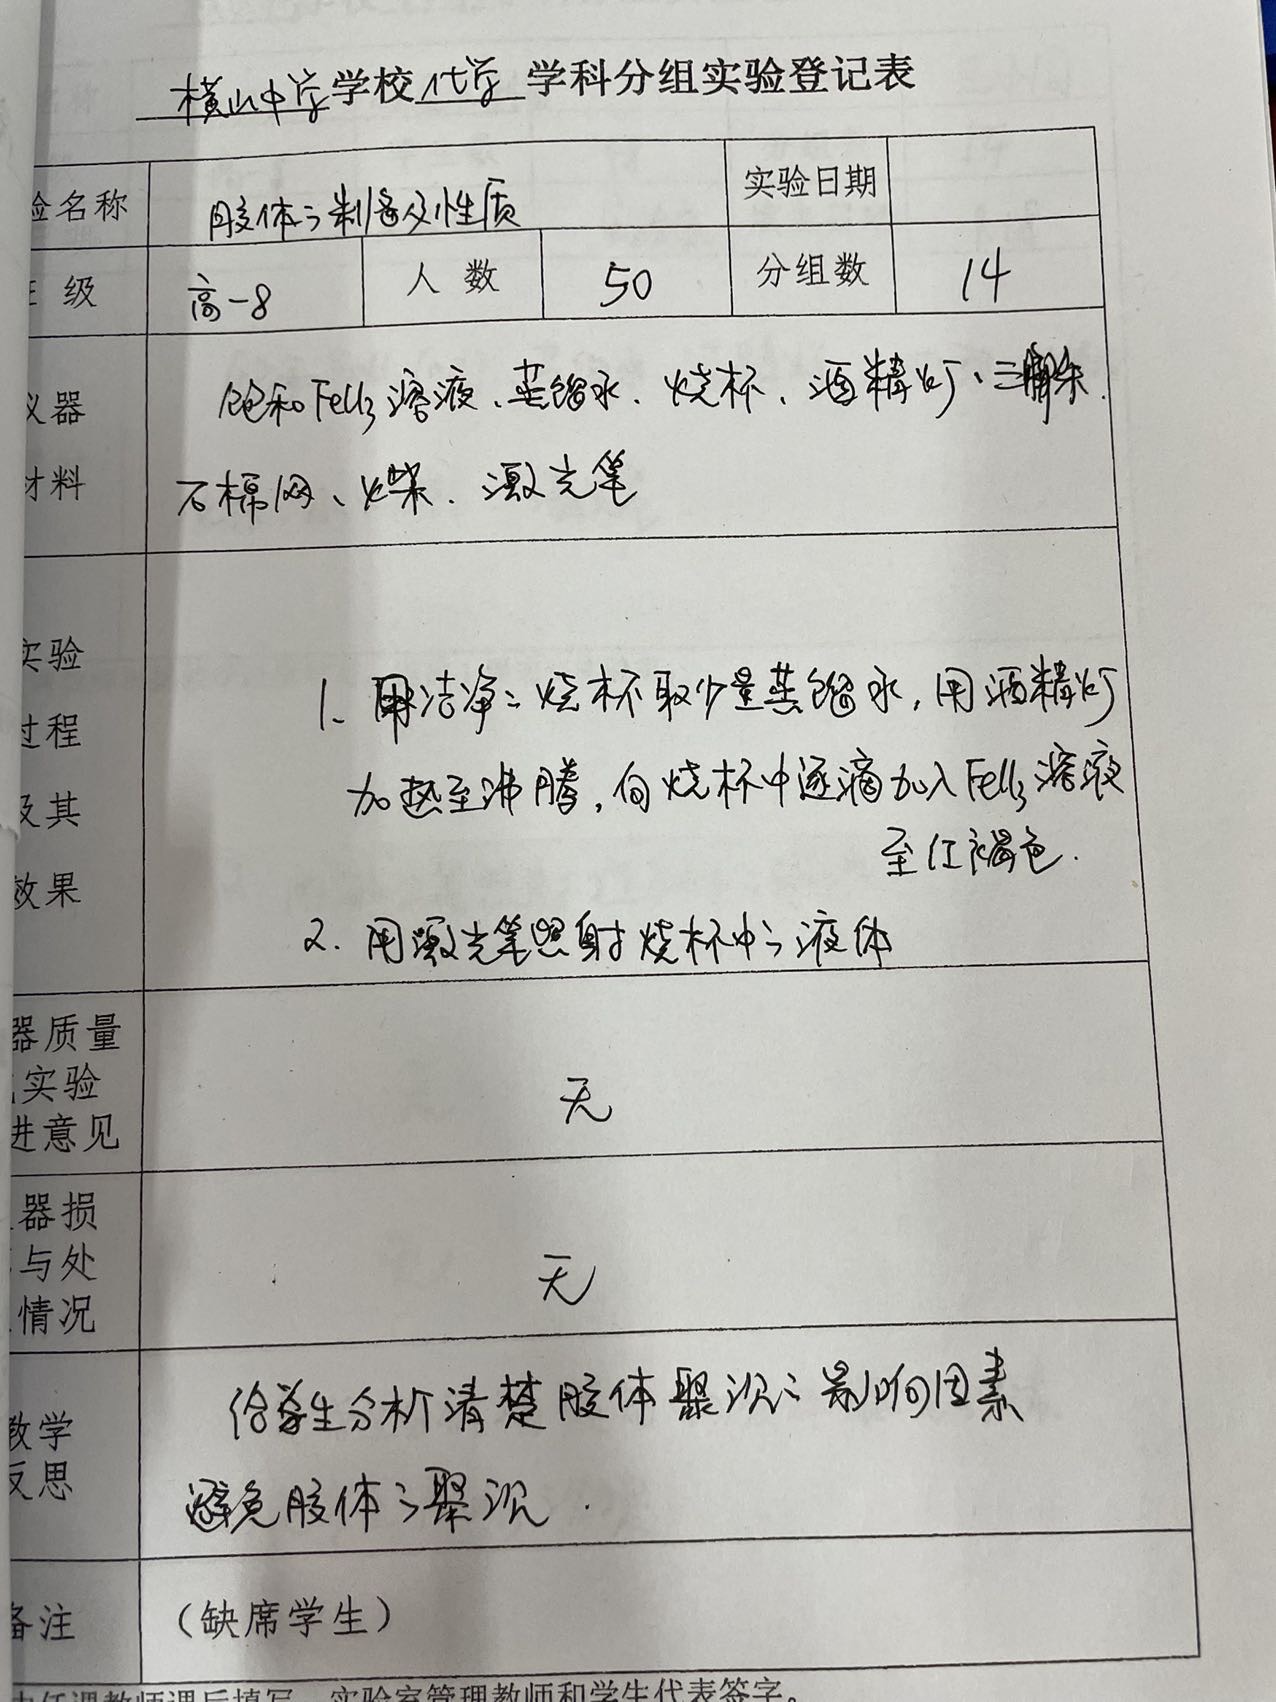 横山中学学校化学学科分组实验登记表
验名称 胶体之制备及性质 实验日期
级 高一8 人数 50 分组数 14
仪器 饱和FeCl3溶液、蒸馏水、烧杯、酒精灯、三脚架、
材料 石棉网、火柴、激光笔
实验
过程
及其
效果
1. 用洁净之烧杯取少量蒸馏水,用酒精灯
加热至沸腾,向烧杯中逐滴加入FeCl3溶液
至红褐色.
2. 用激光笔照射烧杯中之液体
器质量
实验
进意见
无
器损
与处
情况
无
教学
反思
给学生分析清楚胶体聚沉之影响因素
避免胶体之聚沉.
备注 (缺席学生)
由任课教师课后填写,实验室管理教师和学生代表签字。